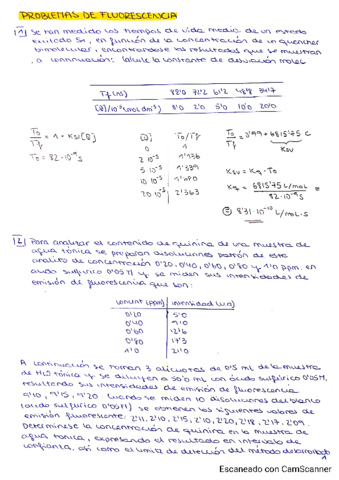 PROBLEMAS DE FLUORESCENCIA
[1] Se han medido los tiempos de vida media de un estado
excitado S₁, en función de la concentración de un quencher
bimolecular, encontrándose los resultados que se muestran
a continuación. Calcule la constante de desactivación
Tf (ns) 82'0 72'2 61'2 48'8 34'7
[Q]/10⁻⁵ (mol dm⁻³) 0'0 2'0 5'0 10'0 20'0
To/Tf = 1 + Ksv [Q]
To = 82·10⁻⁹ s
[Q] To/Tf
0 1
2·10⁻⁵ 1'136
5·10⁻⁵ 1'339
10·10⁻⁵ 1'680
20·10⁻⁵ 2'363
To/Tf = 0'99 + 6815'75 C
Ksv
Ksv = Kq · To
Kq = 6815'75 L/mol / 82·10⁻⁹ s =
= 8'31·10⁻¹⁰ L/mol·s
[2] Para analizar el contenido de quinina de una muestra de
agua tónica se preparan disoluciones patrón de este
analito de concentración 0'20, 0'40, 0'60, 0'80 y 1'0 ppm. en
ácido sulfúrico 0'05M y se miden sus intensidades de
emisión de fluorescencia que son:
concent (ppm) intensidad (u.a)
0'20 5'0
0'40 9'0
0'60 12'6
0'80 17'3
1'0 21'0
A continuación se toman 3 alícuotas de 0'5 mL de la muestra
de tónica y se diluyen a 50'0 mL con ácido sulfúrico 0'05M,
resultando sus intensidades de emisión de fluorescencia
9'10, 9'15, 9'20. Cuando se miden 10 disoluciones del blanco
(ácido sulfúrico 0'05M) se obtienen los siguientes valores de
emisión fluorescente: 2'11, 2'10, 2'15, 2'10, 2'20, 2'18, 2'17, 2'09.
Determínese la concentración de quinina en la muestra de
agua tónica, expresando el resultado en intervalo de
confianza, así como el límite de detección del método desarrollado
Escaneado con CamScanner